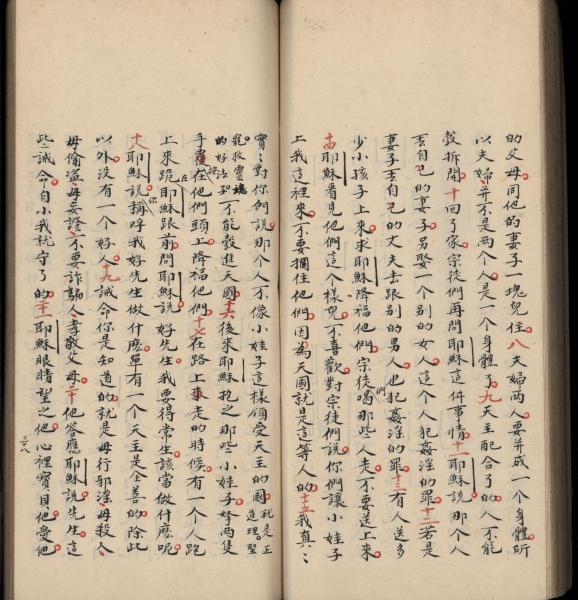 的父母同他的妻子一塊兒住八夫婦兩人要并成一個身體所
以夫婦并不是兩個人是一個身體了九天主配合了的人不能
彀拆開十回了家宗徒們再問耶穌這件事情十一耶穌說那個人
丟自己的妻子另娶一個別的女人這個人犯姦淫的罪十二若是
妻子丟自己的丈夫去跟別的男人也犯姦淫的罪十三有人送多
少小孩子上來求耶穌降福他們宗徒們喝那些人走不要送上來
十四耶穌看見他們這個樣兒不喜歡對宗徒們說你們讓小娃子
上我這裡來不要攔住他們因為天國就是這等人的十五我真〻
實〻對你們說那個人不像小娃子這樣領受天主的國就是正道理聖
寵救靈魂的好法子不能彀進天國十六後來耶穌抱之那些小娃子將兩隻
手覆在他們頭上降福他們十七在路上走的時候有一個人跑
上來跪在耶穌跟前問耶穌說好先生我要得常生該當做什麼呢
十八耶穌說你稱呼我好先生做什麼單有一個天主是全善的除此
以外沒有一個好人十九誡命你是知道的就是毋行邪淫毋殺人
毋偷盜毋妄證不要詐騙人孝敬父母二十他答應耶穌說先生這
些誡命自小我就守了的二十一耶穌眼睛望之他心裡寶貝他愛他